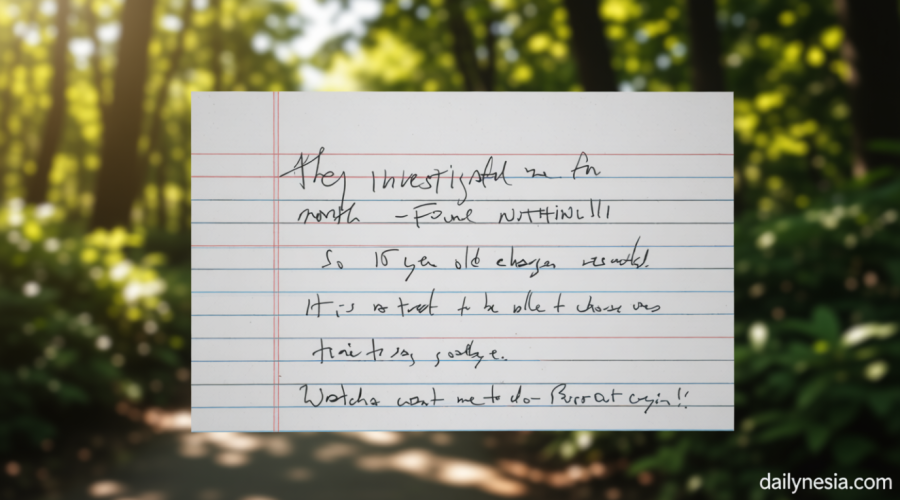 They investigated me for
month – Found NOTHING!!!
So 15 year old charges resulted.
It is treat to be able to choose ones
time to say goodbye.
Watcha want me to do – Burst out cryin!!
dailynesia.com